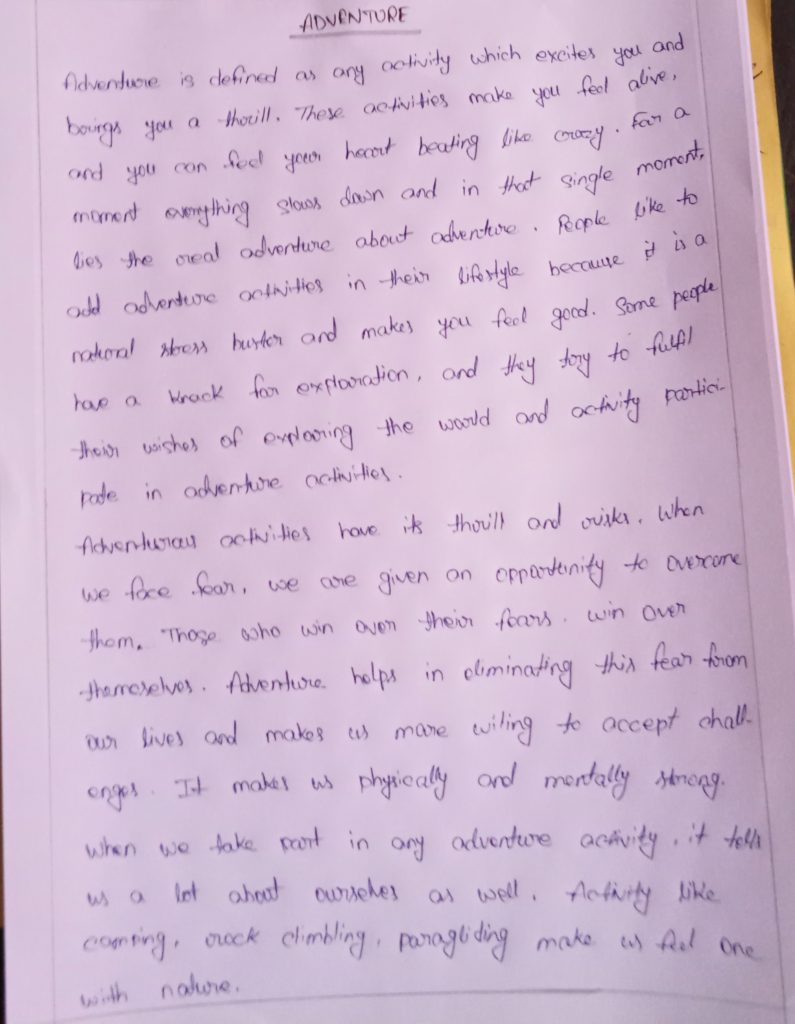 ADVENTURE
Adventure is defined as any activity which excites you and
brings you a thrill. These activities make you feel alive,
and you can feel your heart beating like crazy. For a
moment everything slows down and in that single moment,
lies the real adventure about adventure. People like to
add adventure activities in their lifestyle because it is a
natural stress buster and makes you feel good. Some people
have a knack for exploration, and they try to fulfil
their wishes of exploring the world and activity partici-
pate in adventure activities.
Adventurous activities have its thrill and risks. When
we face fear, we are given an opportunity to overcome
them. Those who win over their fears. win over
themeselves. Adventure helps in eliminating this fear from
our lives and makes us more wiling to accept chall-
enges. It makes us physically and mentally strong.
When we take part in any adventure activity, it tells
us a lot about ourselves as well. Activity like
camping, rock climbling, paragliding make us feel one
with nature.